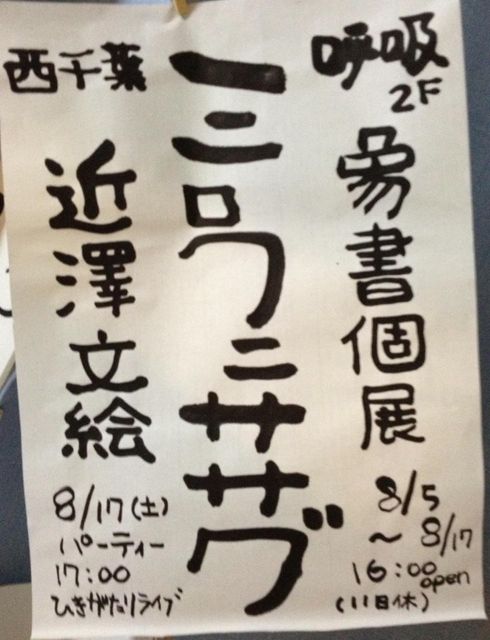 呼吸
2F
象書個展
8/5
〜8/17
16:00
open
(11日休)
三ロワニササグ
西千葉
近澤文絵
8/17(土)
パーティー
17:00
ひきがたりライブ